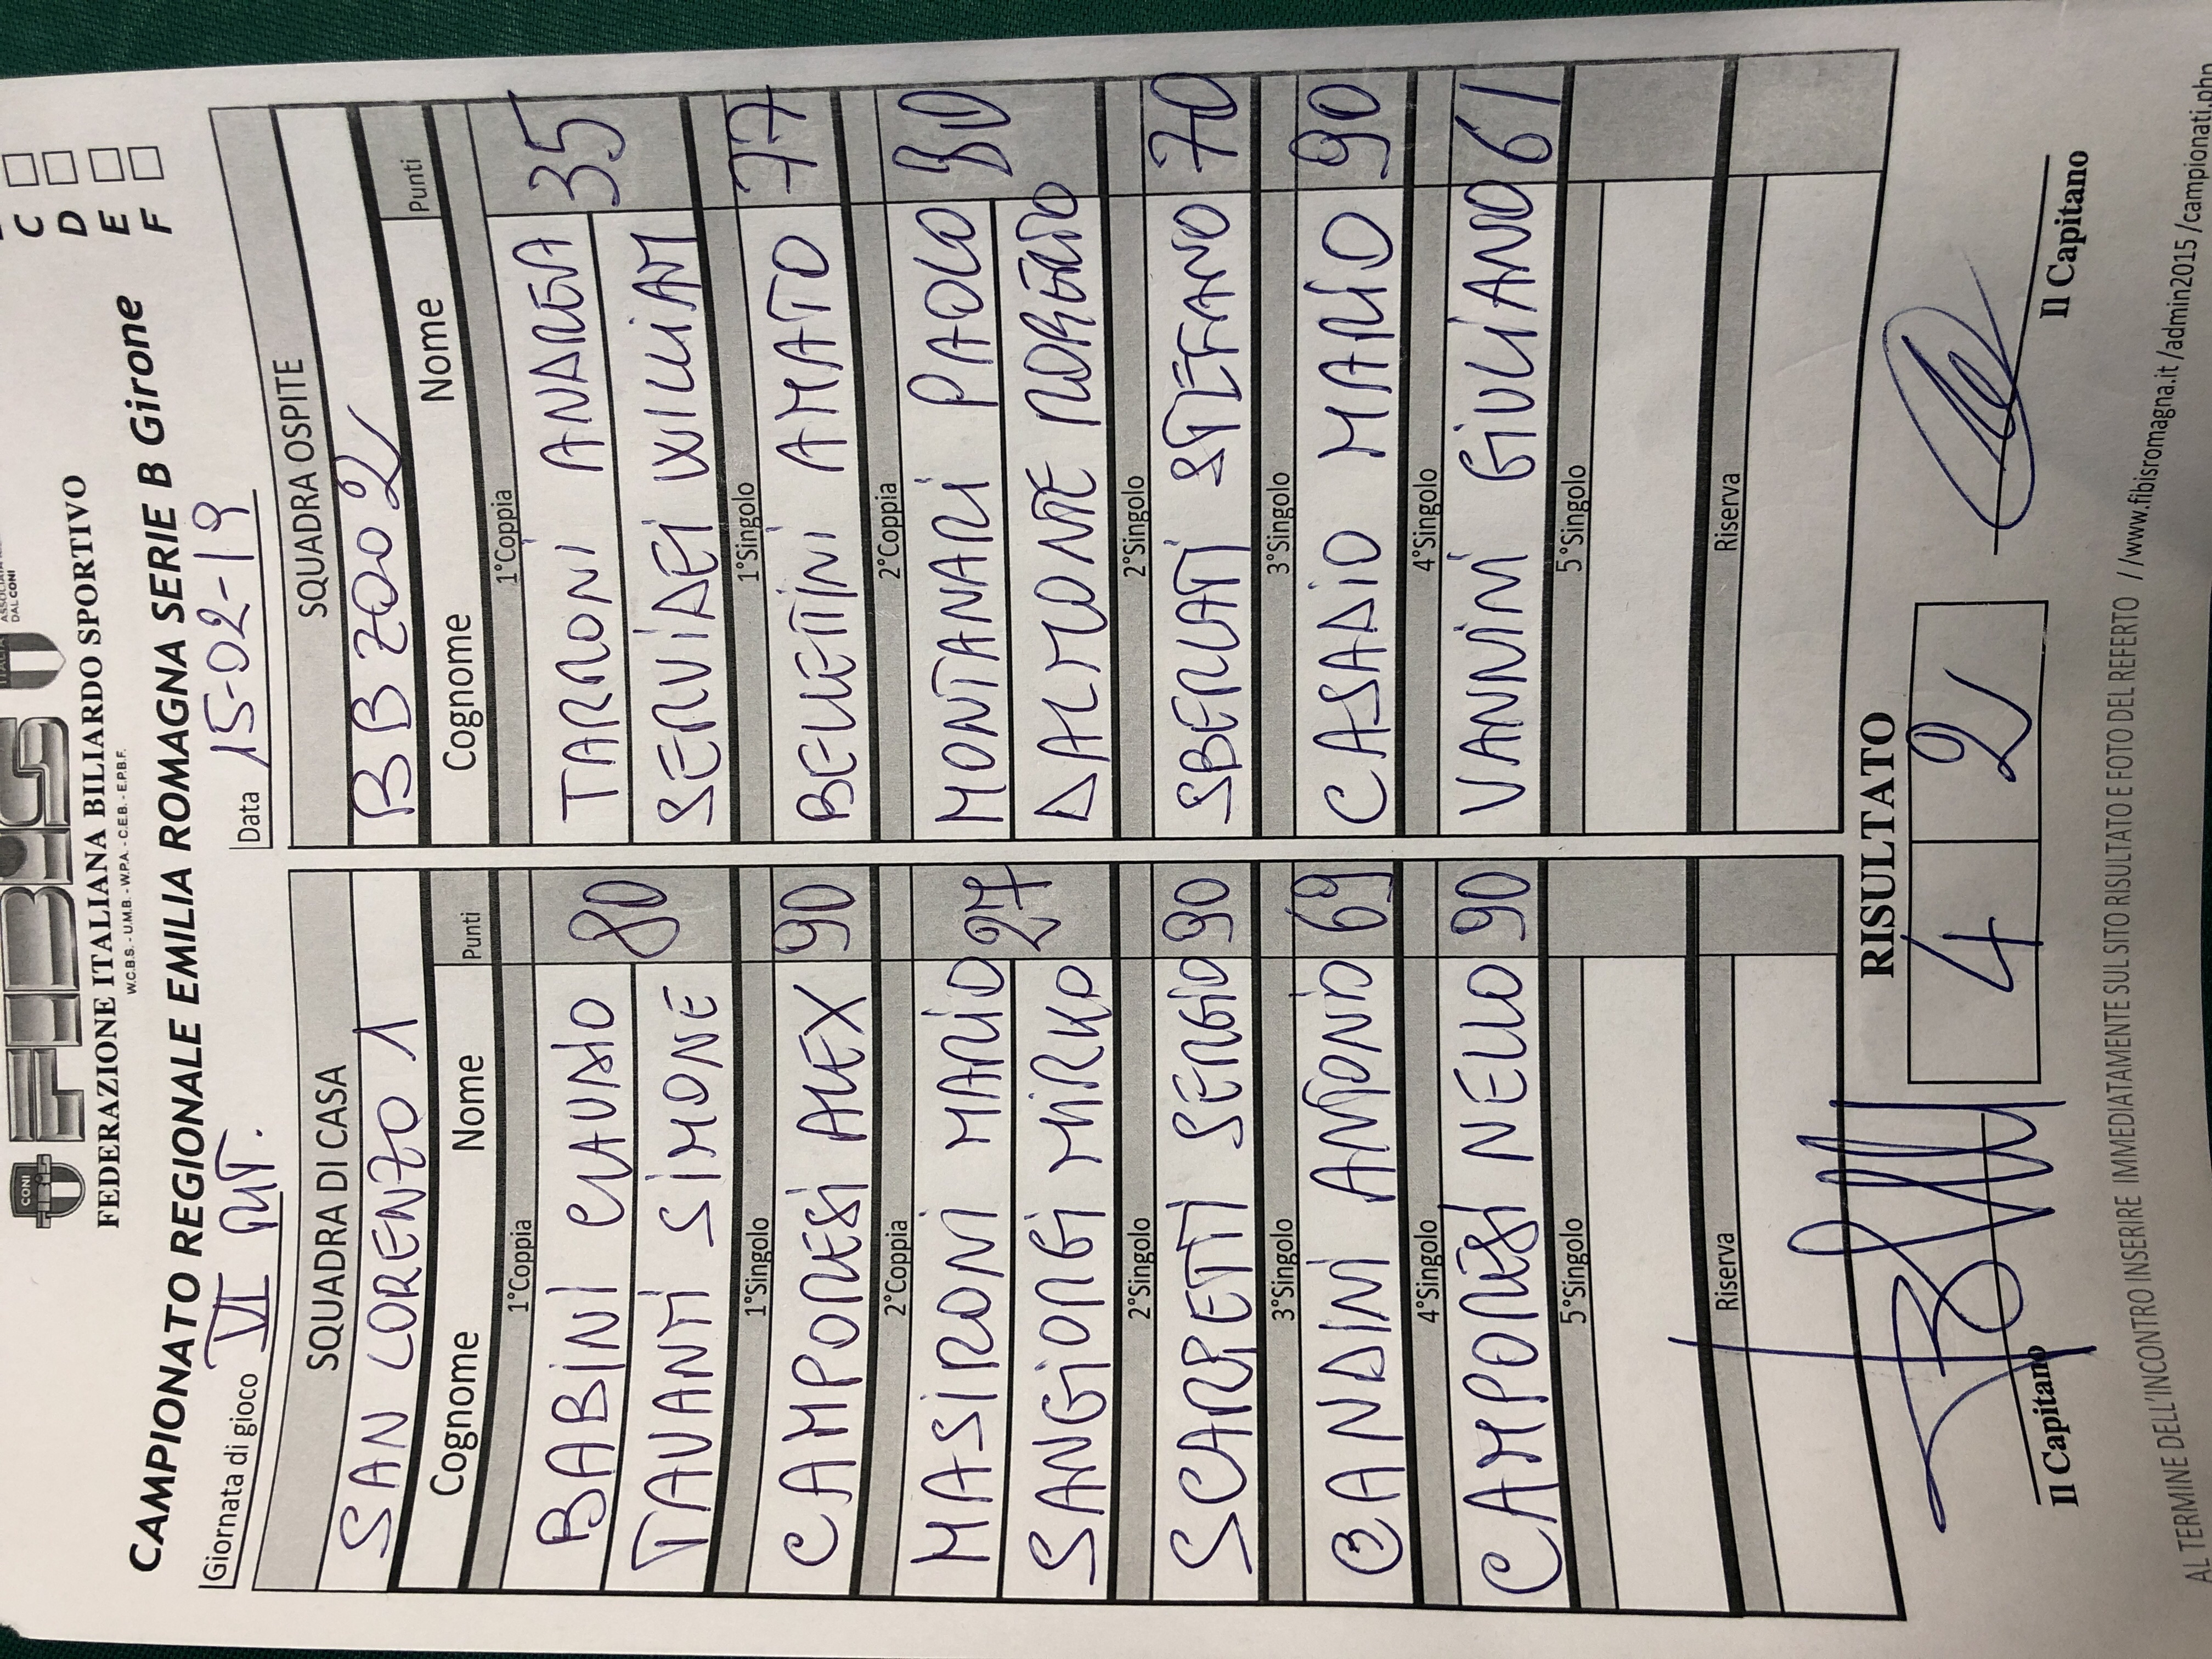 CONI
FIBiS
ITALIA
ASSOCIATA
DAL CONI
FEDERAZIONE ITALIANA BILIARDO SPORTIVO
W.C.B.S. - U.M.B. - W.P.A. - C.E.B. - E.P.B.F.
C
D
E
F
CAMPIONATO REGIONALE EMILIA ROMAGNA SERIE B Girone
Giornata di gioco VI RIT. Data 15-02-19
SQUADRA DI CASA SQUADRA OSPITE
SAN LORENZO 1 BB 2002
Cognome Nome Punti Cognome Nome Punti
1°Coppia 1°Coppia
BABINI CLAUDIO 80 TARRONI ANDREA 35
TAVANTI SIMONE SERVIDEI WILLIAM
1°Singolo 1°Singolo
CAMPORESI ALEX 90 BELLETTINI AMATO 77
2°Coppia 2°Coppia
MASIRONI MARIO 27 MONTANARI PAOLO 80
SANGIORGI MIRKO DALMONTE NORGEATO
2°Singolo 2°Singolo
SCARPETTI SERGIO 90 SBERLATI STEFANO 70
3°Singolo 3°Singolo
BANDINI ANTONIO 69 CASADIO MARIO 90
4°Singolo 4°Singolo
CAMPORESI NELLO 90 VANNINI GIULIANO 61
5°Singolo 5°Singolo
Riserva Riserva
RISULTATO
4 2
Il Capitano Il Capitano
AL TERMINE DELL'INCONTRO INSERIRE IMMEDIATAMENTE SUL SITO RISULTATO E FOTO DEL REFERTO //www.fibisromagna.it /admin2015 /campionati.php